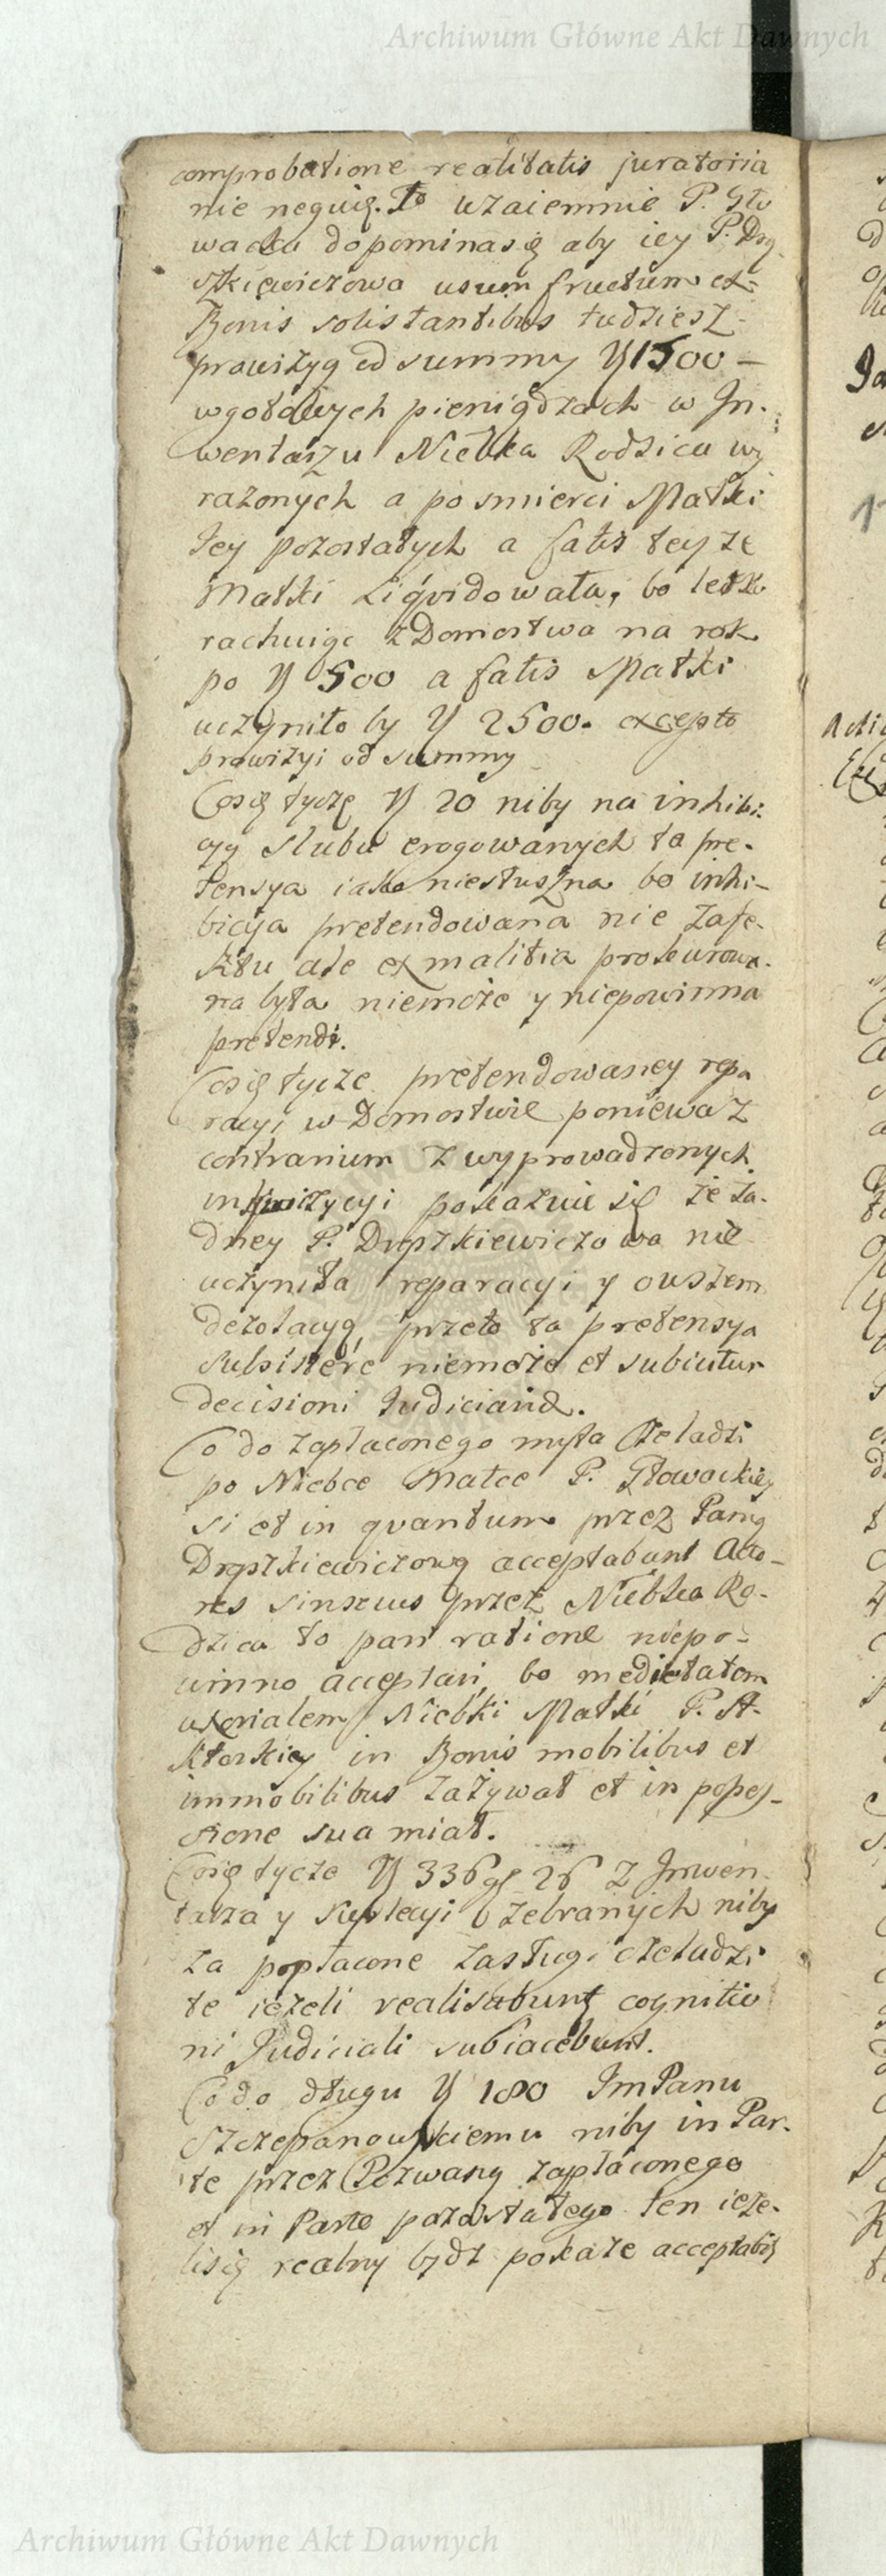 Archiwum Główne Akt Dawnych
comprobatione realitatis juratoria
nie neguię. To wzaiemnie P. Gło
wacka dopomina się aby iey P. Drą
szkiewiczowa usum fructum ex
Bonis solistantibus tudziesz
prowizyą od summy 1500 –
wgotowych pieniądzach w In.
wentarzu Niebka Rodzica wy
rażonych a po smierci Matki
Iey pozostałych a fatis teyże
Matki Liqvidowała, bo letko
rachuiąc z Domostwa na rok
po 500 a fatis Matki
uczyniło by 2500. excepto
prowizyi od summy
Cosię tyczę 20 niby na inhibi:
cyą slubu erogowanych ta pre-
tensya iako niesłuszna bo inhi-
bicija pretendowana nie zafe-
ktu ale ex malitia prokurowa-
na była niemoże y niepowinna
pretendi.
Cosię tycze pretendowaney repa
racyi w Domostwie poniewaz
contrarium z wyprowadzonych
inkwizycyi pokazuie się że ża-
dney P. Drąszkiewiczowa nie
uczyniła reparacyi y owszem
dezolacyą, przeto ta pretensya
subsistere niemoże et subiicitur
decisioni Judiciariæ.
Co do zapłaconego myta Czeladzi
po Niebce Matce P. Głowackiey
si et in qvantum przez Panią
Drąszkiewiczową acceptabunt Acto-
res sinsecus przez Niebka Ro-
dzica to pari ratione niepo-
winno acceptari, bo medietatem
uxorialem Niebki Matki P. A-
ktorkiey in Bonis mobilibus et
immobilibus zażywał et in posses-
sione sua miał.
Cosię tycze 336 gr 26 z Inwen
tarza y Suplecyi zebranych niby
za popłacone zasługi czeladzi
te ieżeli realisabunt cognitio
ni Judiciali subiacebunt.
Co do długu 180 ImPanu
Szczepanowskiemu niby in Par-
te przez Pozwaną zapłaconego
et in Parte pozostałego ten ieże-
lisię realny bydz pokaże acceptabit
Archiwum Główne Akt Dawnych